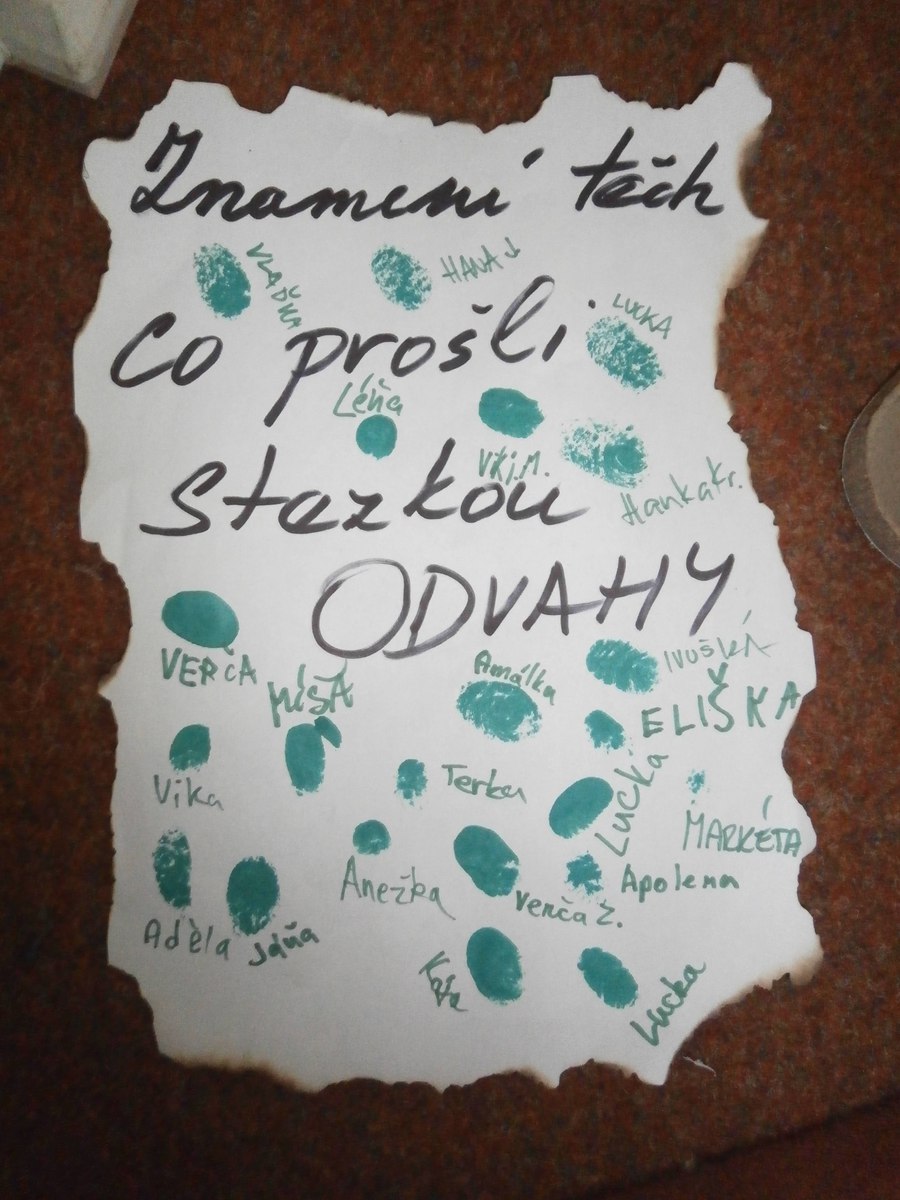 Znamení těch
VLAĎKA
HANA J
co prošli
LUCKA
Léňa
Viki.M.
Hanka Kr.
stezkou
ODVAHY
VERČA
MÍŠA
Amálka
IVUŠKA
ELIŠKA
Vika
Terka
LUCKA
MARKÉTA
Anežka
Apolena
Verča Ž.
Adéla
Jáňa
Lucka